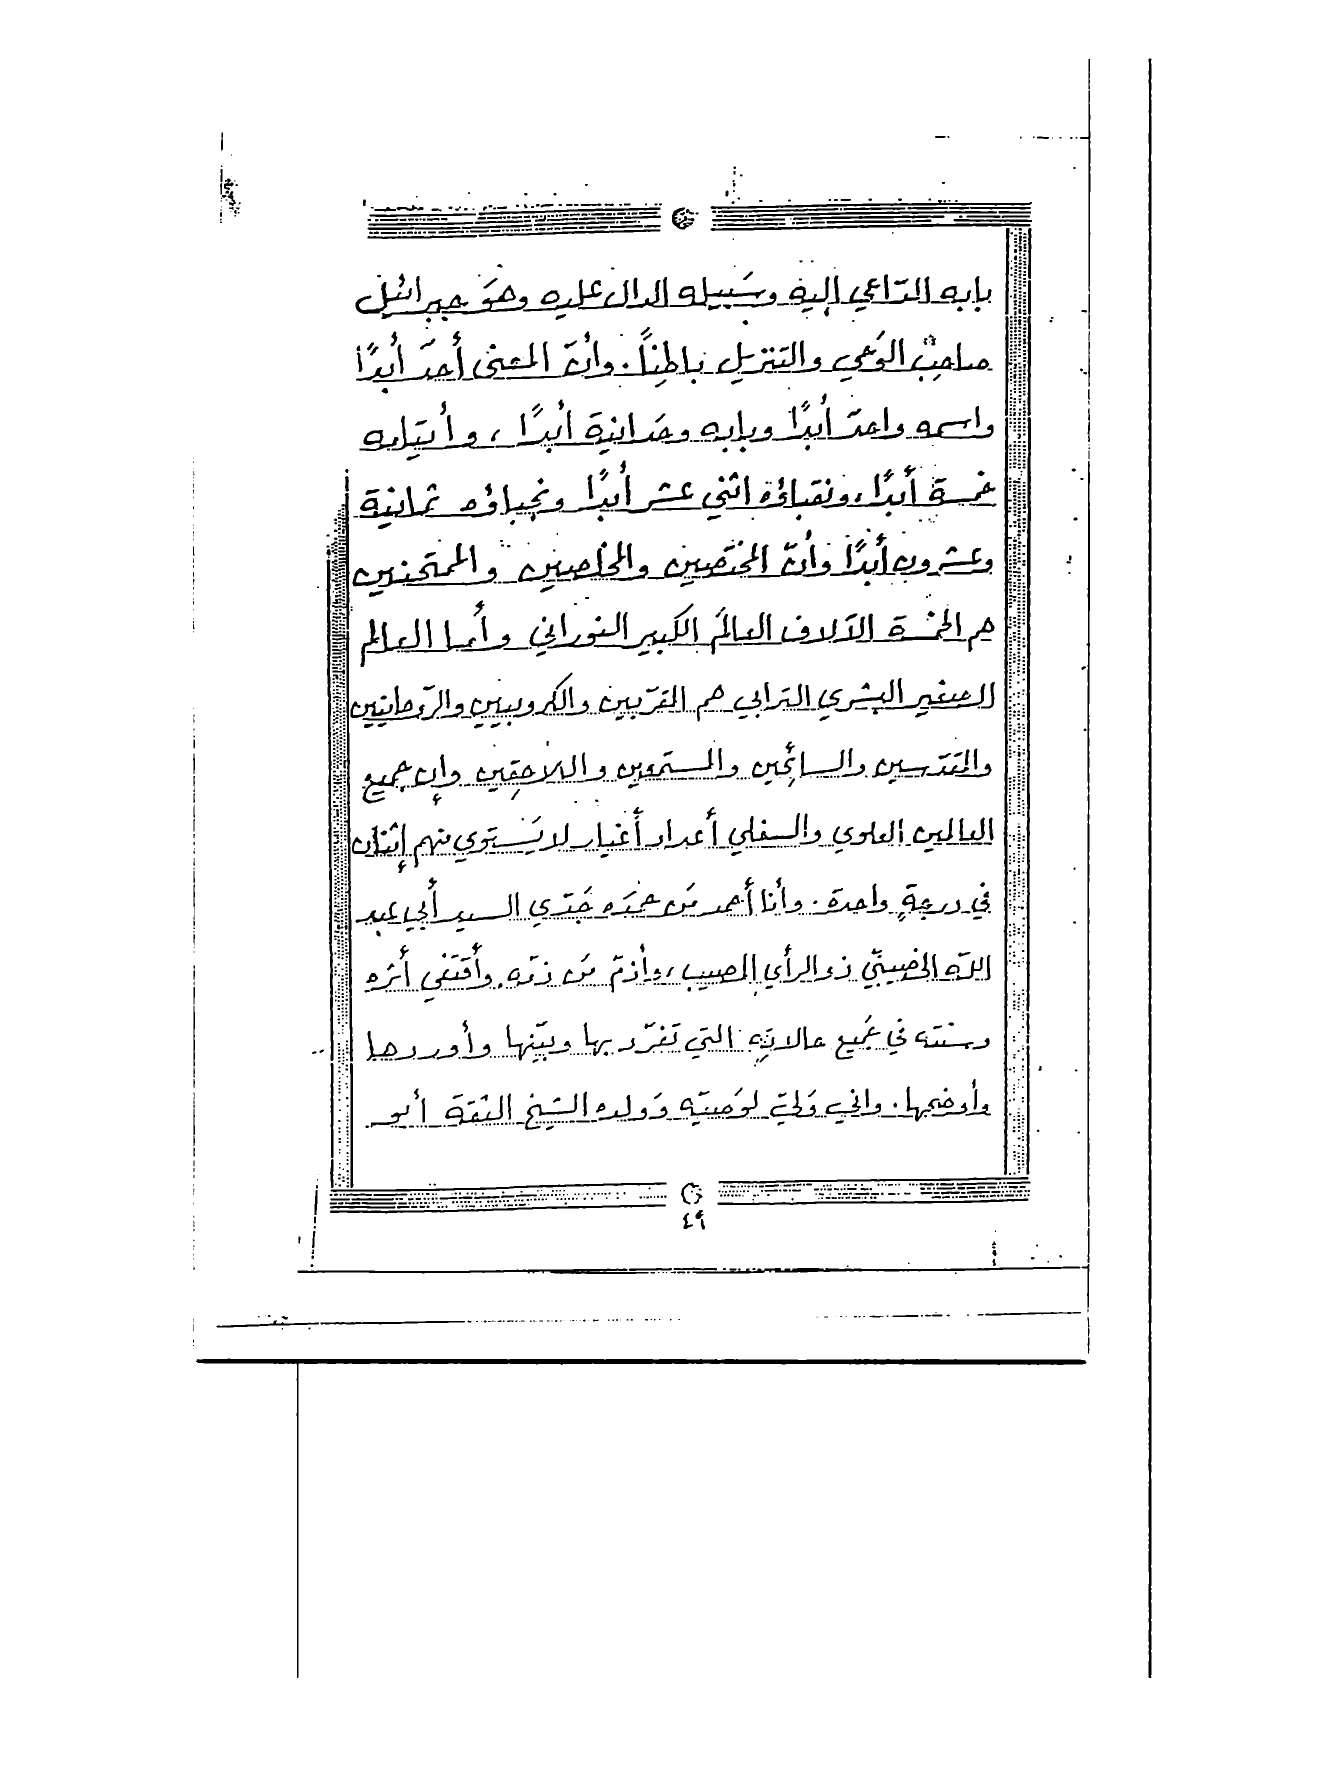 بابه الدّاعي إليه وسَبيله الدال عليه وهوَ جبرائيل
صاحِبُ الوَحي والتنزيل باطِناً. وأنّ المعنى أحدّ أبدًا
واسمه واحدّ أبدًا وبابه وحدانية أبدًا، وأيتامه
خمسة أبدًا، ونقباؤه اثني عشر أبدًا ونجباؤه ثمانية
وعشرون أبدًا وأنّ المختصين والمخلصين والممتحنين
هم الخمسة الآلاف العالمَ الكبير النوراني وأما العالم
الصغير البشري الترابي هم المقرّبين والكروبيين والرّوحانيين
والمقدّسين والسائحِين والمستمعين واللاحقِين وإن جميع
العالمين العلوي والسفلي أعداد أغيار لا يَستوي منهم إثنان
في درجةٍ واحدة. وأنا أحمد مَن حمدَه جَدّي السيد أبي عبد
اللّه الخصيبيّ ذو الرأي المصيب، وأذمّ مَن ذمّه. وأقتَفي أثره
وسنته في جَميع حالاتِه التي تَفرّد بها وبيّنها وأوردها
وأوضحها. واني وَليّ لوَصيته وَولده الشيخ الثقة أبو
٤٩